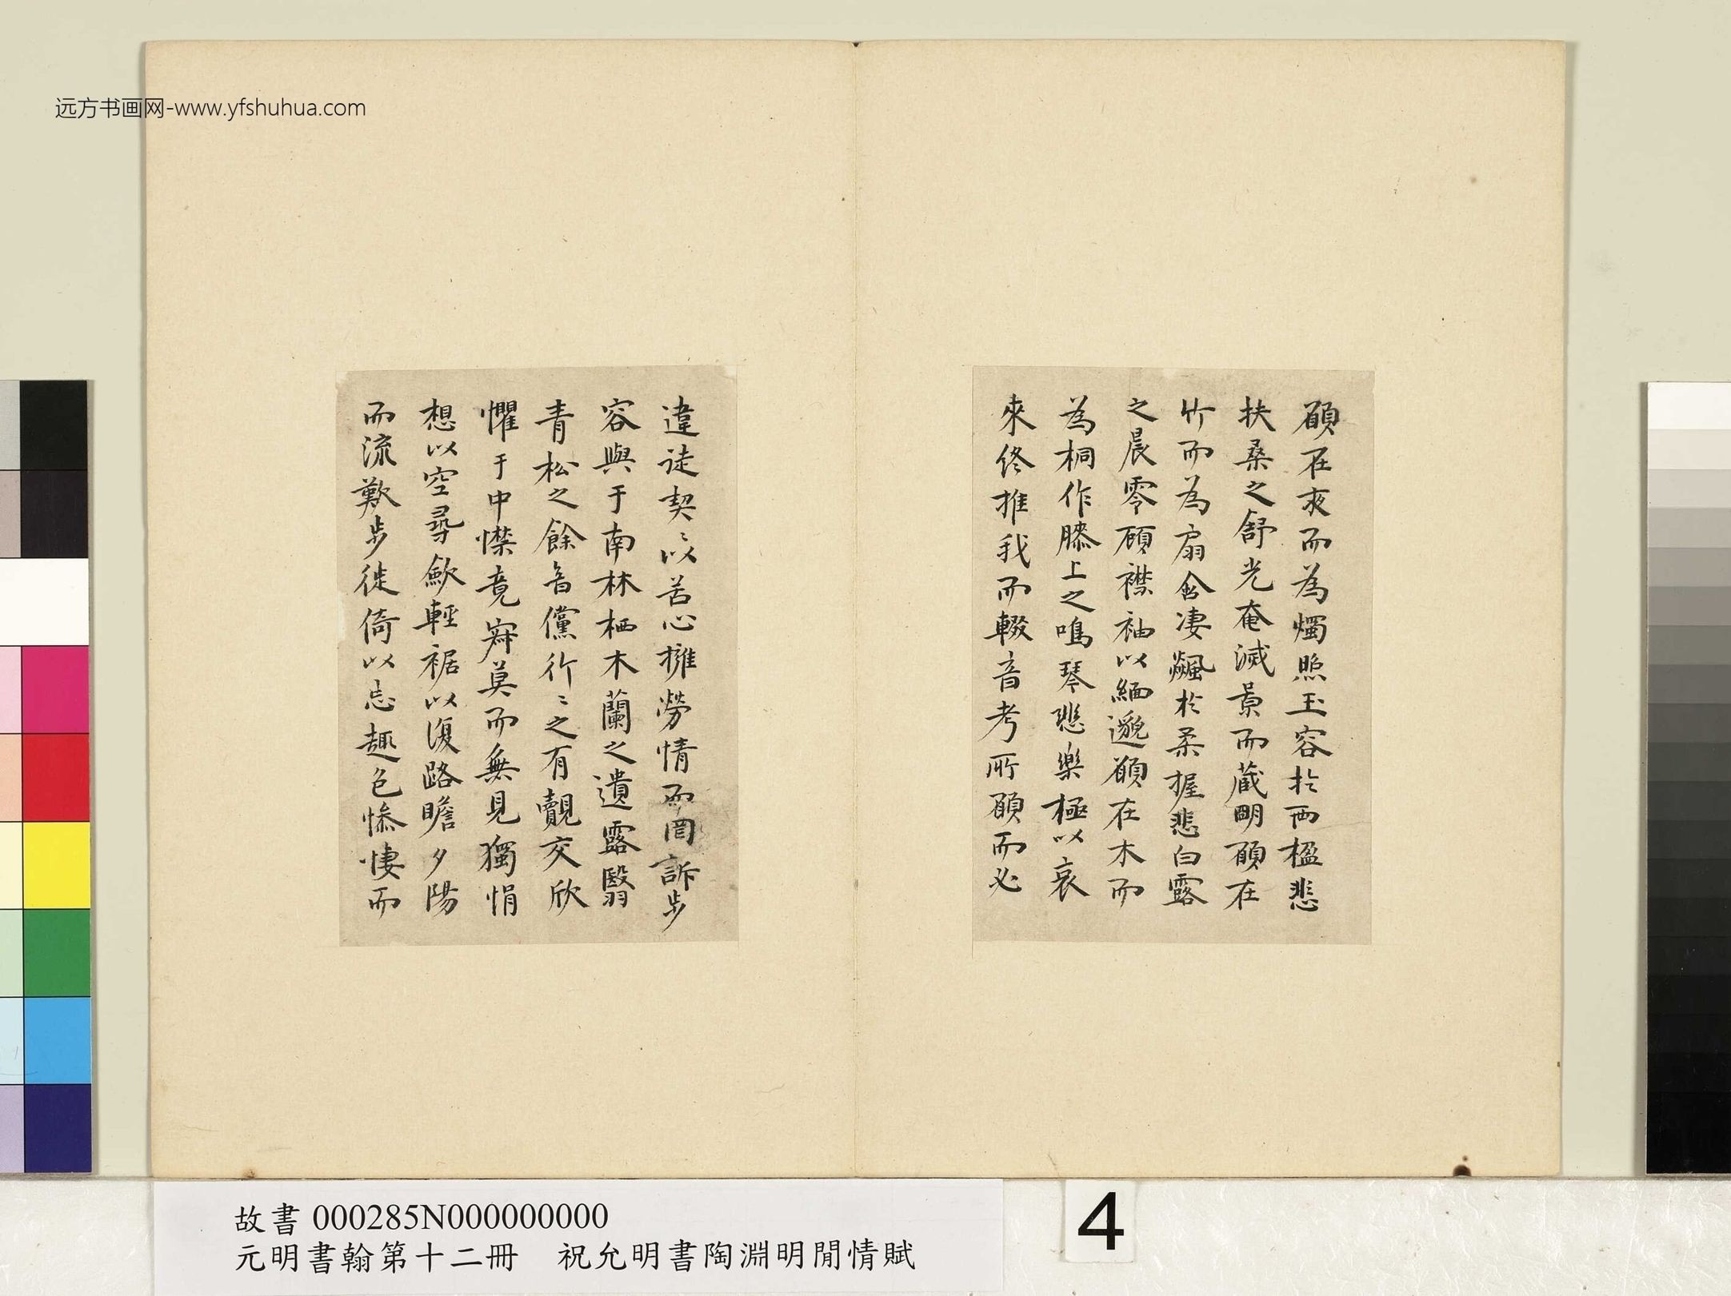 远方书画网-www.yfshuhua.com
願在夜而為燭照玉容於两楹悲
扶桑之舒光奄滅景而藏明願在
竹而為扇含凄飈於柔握悲白露
之晨零顾襟袖以緬邈願在木而
為桐作膝上之鳴琴悲樂極以哀
來终推我而輟音考所願而必
違徒契〻以苦心擁勞情而罔訴步
容與于南林栖木蘭之遺露翳
青松之餘音儻行〻之有覿交欣
懼于中襟竟寂莫而無見獨悁
想以空尋歛輕裾以復路瞻夕陽
而流歎步徙倚以忘趣色惨悽而
故書 000285N000000000
元明書翰第十二冊　祝允明書陶淵明閒情賦
4